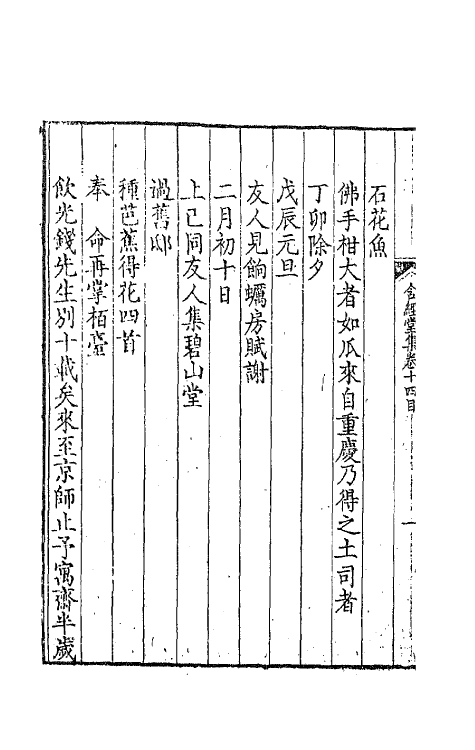 含經堂集卷十四目
一
石花魚
佛手柑大者如瓜來自重慶乃得之土司者
丁卯除夕
戊辰元旦
友人見餉蠣房賦謝
二月初十日
上巳同友人集碧山堂
過舊邸
種芭蕉得花四首
奉　命再掌栢臺
飲光錢先生別十載矣來至京師止予寓齋半歲